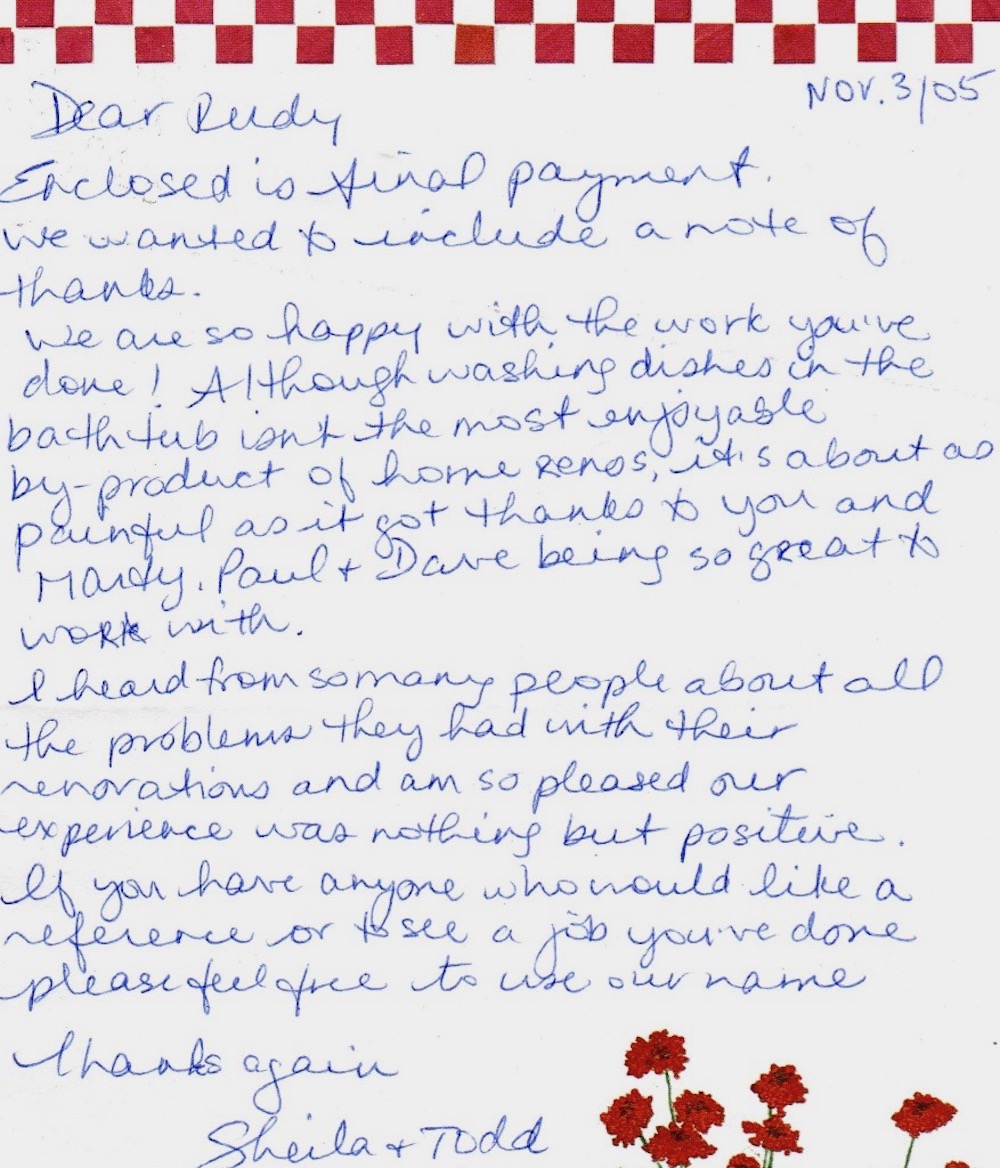 Nov. 3/05
Dear Rudy
Enclosed is final payment.
We wanted to include a note of
thanks.
We are so happy with the work you've
done! Although washing dishes in the
bathtub isn't the most enjoyable
by-product of home renos, it's about as
painful as it got thanks to you and
Marty, Paul + Dave being so great to
work with.
I heard from so many people about all
the problems they had with their
renovations and am so pleased our
experience was nothing but positive.
If you have anyone who would like a
reference or to see a job you've done
please feel free to use our name
Thanks again
Sheila + Todd